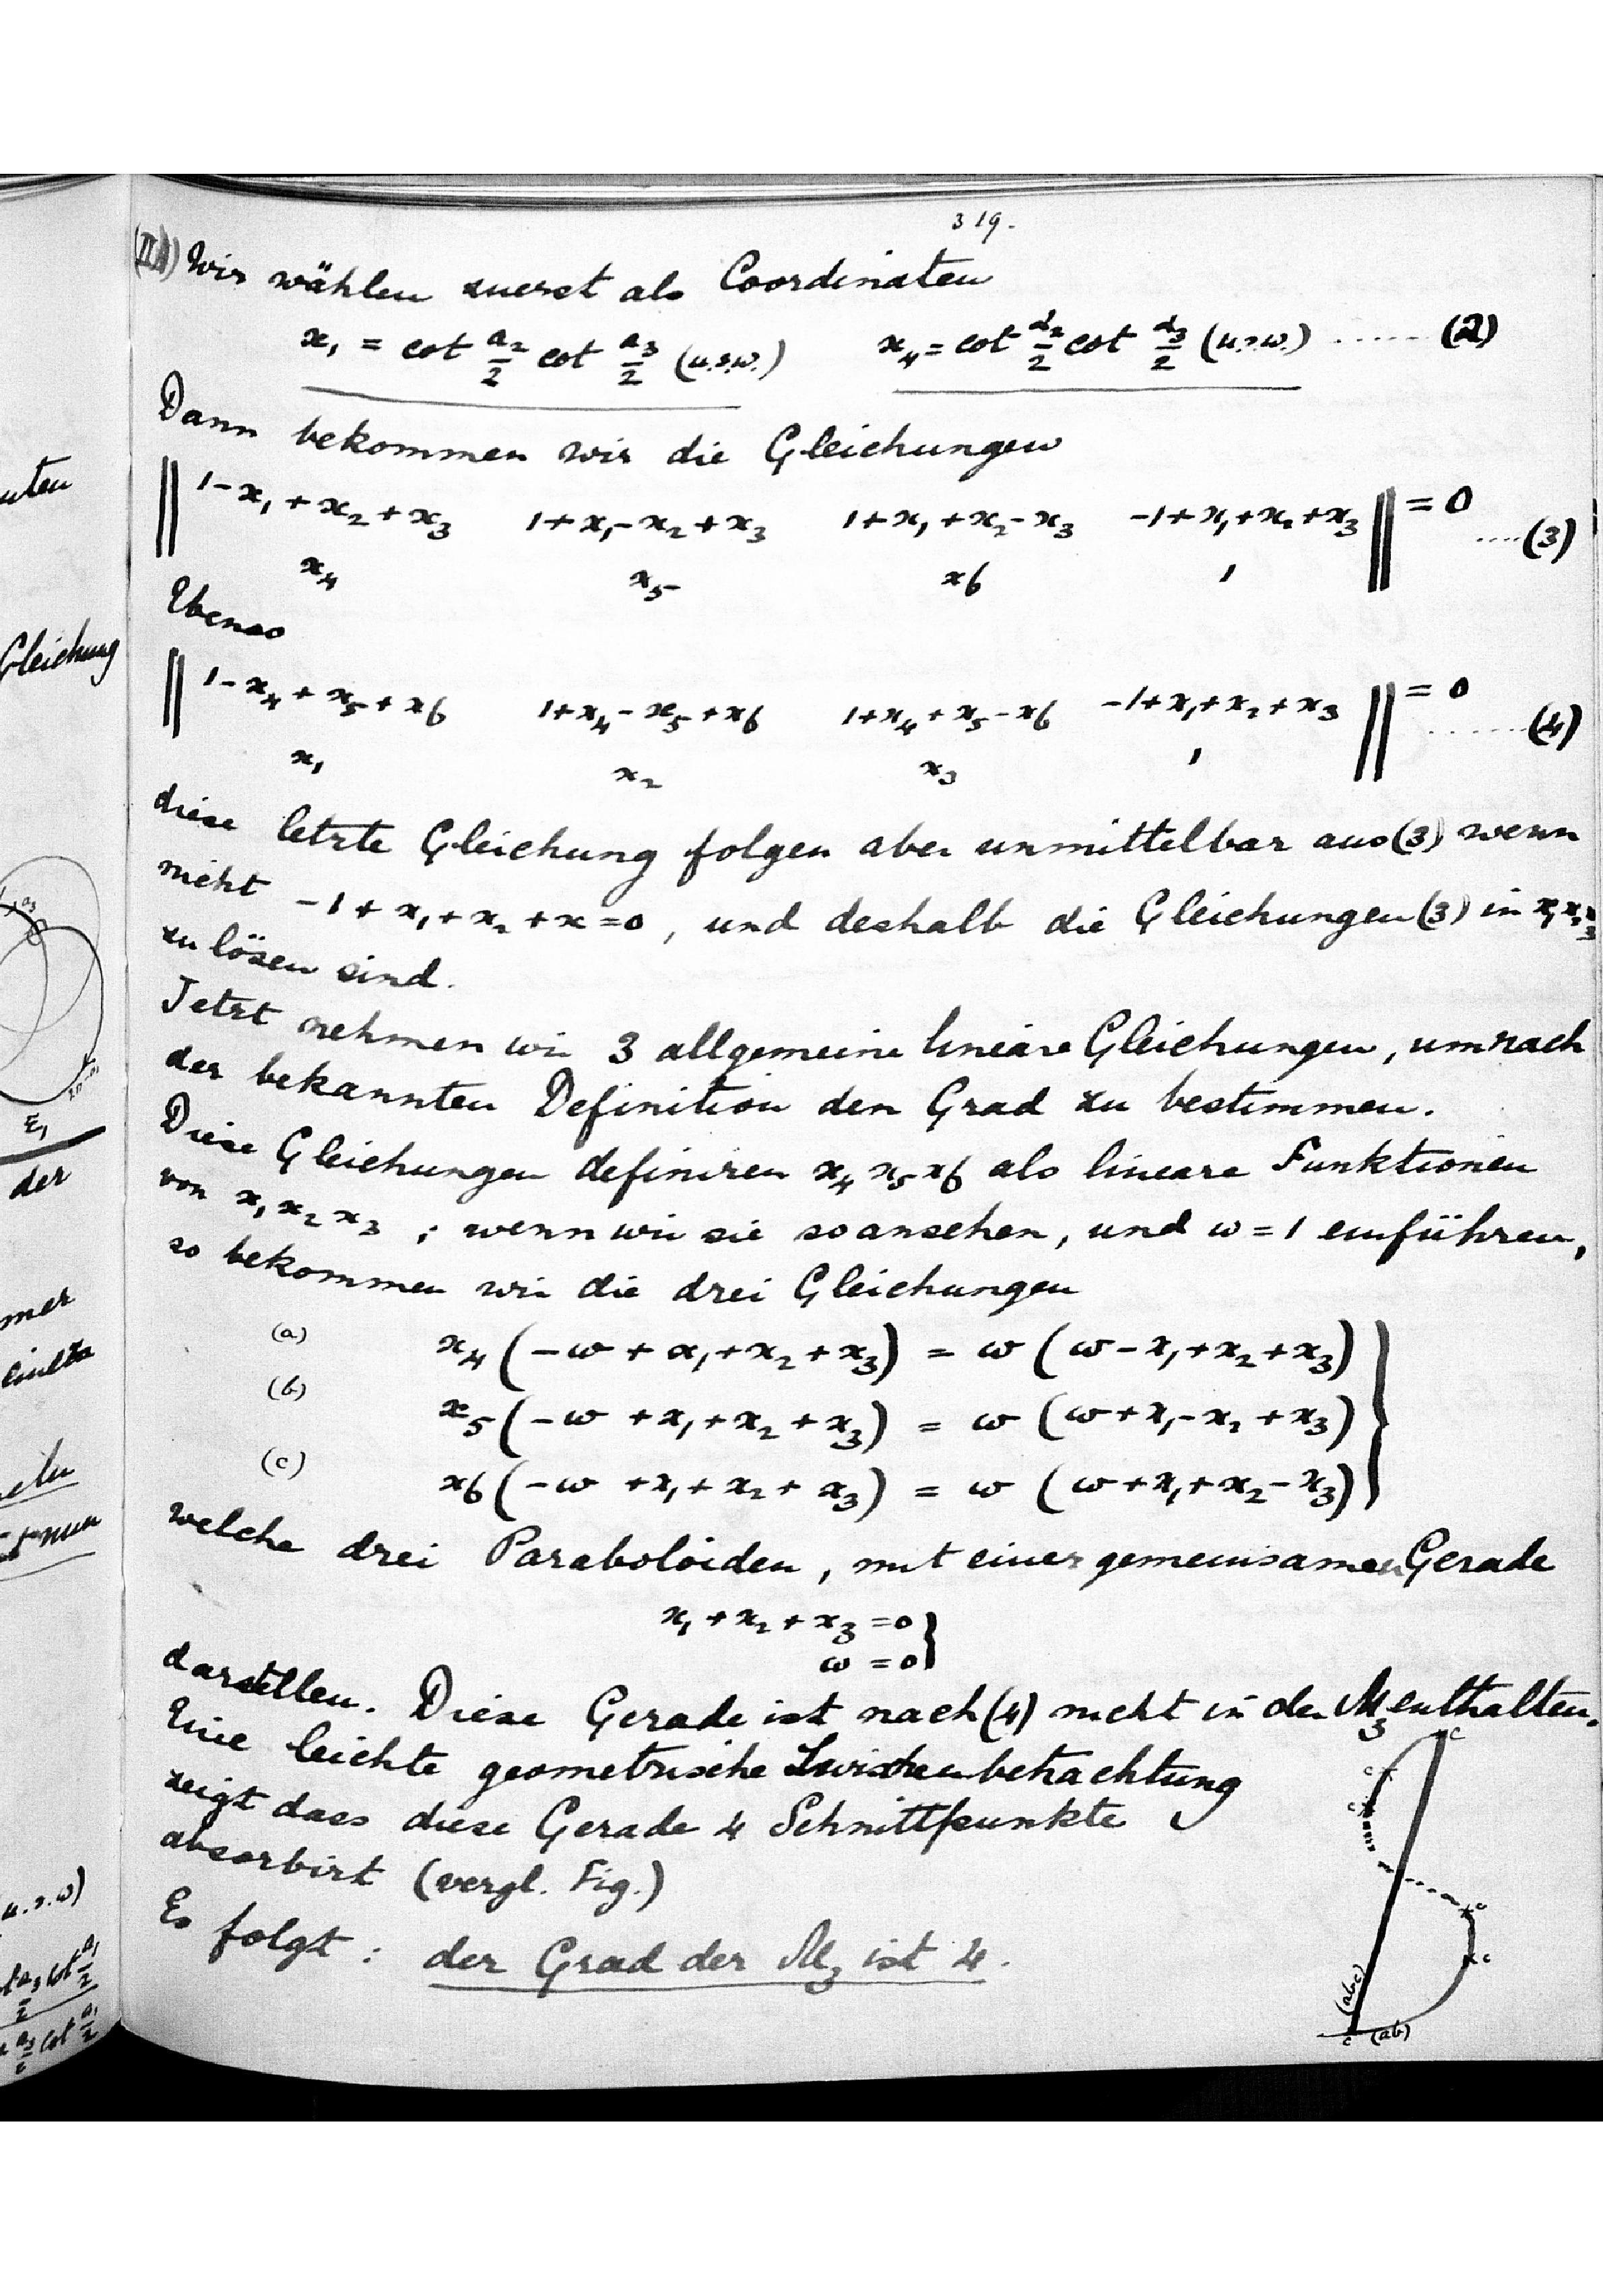 319.
(III) Wir wählen zuerst als Coordinaten
x₁ = cot a₂/2 cot a₃/2 (u.s.w.) x₄ = cot α₂/2 cot α₃/2 (u.s.w.) ...... (2)
Dann bekommen wir die Gleichungen
|| 1-x₁+x₂+x₃ 1+x₁-x₂+x₃ 1+x₁+x₂-x₃ -1+x₁+x₂+x₃ || = 0 .... (3)
x₄ x₅ x₆ 1
Ebenso
|| 1-x₄+x₅+x₆ 1+x₄-x₅+x₆ 1+x₄+x₅-x₆ -1+x₁+x₂+x₃ || = 0 ...... (4)
x₁ x₂ x₃ 1
diese letzte Gleichung folgen aber unmittelbar aus (3) wenn
nicht -1+x₁+x₂+x=0, und deshalb die Gleichungen (3) in x₁x₂x₃
zu lösen sind.
Jetzt nehmen wir 3 allgemeine lineäre Gleichungen, um nach
der bekannten Definition den Grad zu bestimmen.
Diese Gleichungen definiren x₄ x₅ x₆ als lineare Funktionen
von x₁ x₂ x₃ ; wenn wir sie so ansehen, und ω = 1 einführen,
so bekommen wir die drei Gleichungen
(a) x₄(-ω+x₁+x₂+x₃) = ω(ω-x₁+x₂+x₃)
(b) x₅(-ω+x₁+x₂+x₃) = ω(ω+x₁-x₂+x₃)
(c) x₆(-ω+x₁+x₂+x₃) = ω(ω+x₁+x₂-x₃)
welche drei Paraboloiden, mit einer gemeinsamen Gerade
x₁+x₂+x₃=0
ω=0
darstellen. Diese Gerade ist nach (4) nicht in der M₃ enthalten.
Eine leichte geometrische Zwischenbetrachtung
zeigt dass diese Gerade 4 Schnittpunkte
absorbirt (vergl. Fig.)
Es folgt: der Grad der M₃ ist 4.
c
c
c
c
c
(abc)
c (ab)
uten
Gleichung
a₃
E₁
der
mer
(u.s.w)